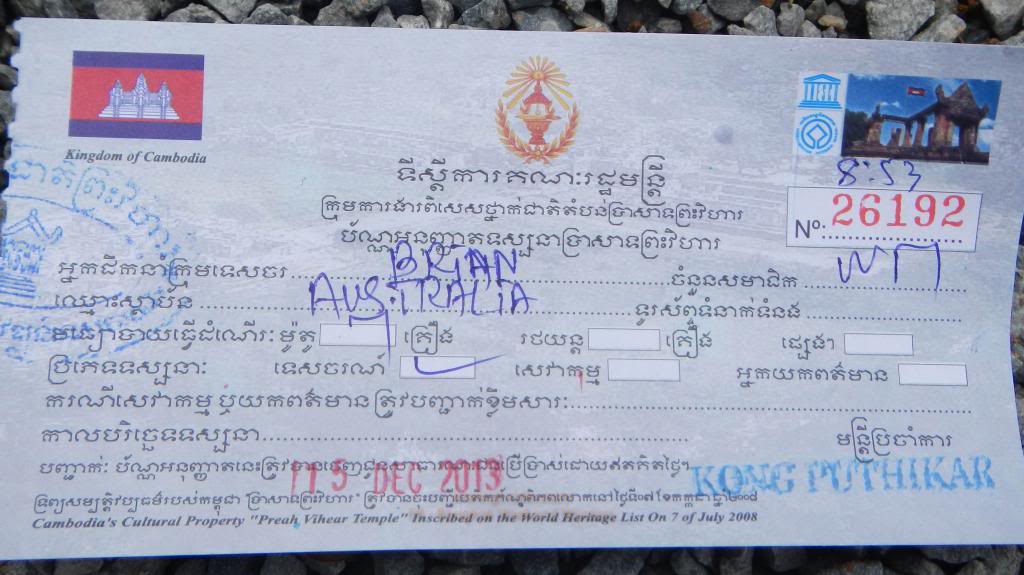 Kingdom of Cambodia
8:53
ទីស្តីការគណៈរដ្ឋមន្ត្រី
Nº: 26192
ក្រុមការងារពិសេសថ្នាក់ជាតិតំបន់ប្រាសាទព្រះវិហារ
ប័ណ្ណអនុញ្ញាតទស្សនាប្រាសាទព្រះវិហារ
អ្នកដឹកនាំក្រុមទេសចរ BRIAN ចំនួនសមាជិក
ឈ្មោះស្ថាប័ន AUSTRALIA ទូរស័ព្ទទំនាក់ទំនង
មធ្យោបាយធ្វើដំណើរ: ម៉ូតូ ១ គ្រឿង រថយន្ត គ្រឿង ផ្សេងៗ
ប្រភេទទស្សនា: ទេសចរណ៍ សេវាកម្ម អ្នកយកពត៌មាន
ករណីសេវាកម្ម ឬយកពត៌មានត្រូវបញ្ជាក់ខ្លឹមសារ:
កាលបរិច្ឆេទទស្សនា
មន្ត្រីប្រចាំការ
បញ្ជាក់: ប័ណ្ណអនុញ្ញាតនេះត្រូវបានចេញជូនសាធារណជនប្រើប្រាស់ដោយឥតគិតថ្លៃ។
15 DEC 2013
KONG PUTHIKAR
ទ្រព្យសម្បត្តិវប្បធម៌របស់កម្ពុជា "ប្រាសាទព្រះវិហារ" ត្រូវបានចុះបញ្ជីបេតិកភ័ណ្ឌពិភពលោកនៅថ្ងៃទី០៧ ខែកក្កដា ឆ្នាំ២០០៨
Cambodia's Cultural Property "Preah Vihear Temple" Inscribed on the World Heritage List On 7 of July 2008